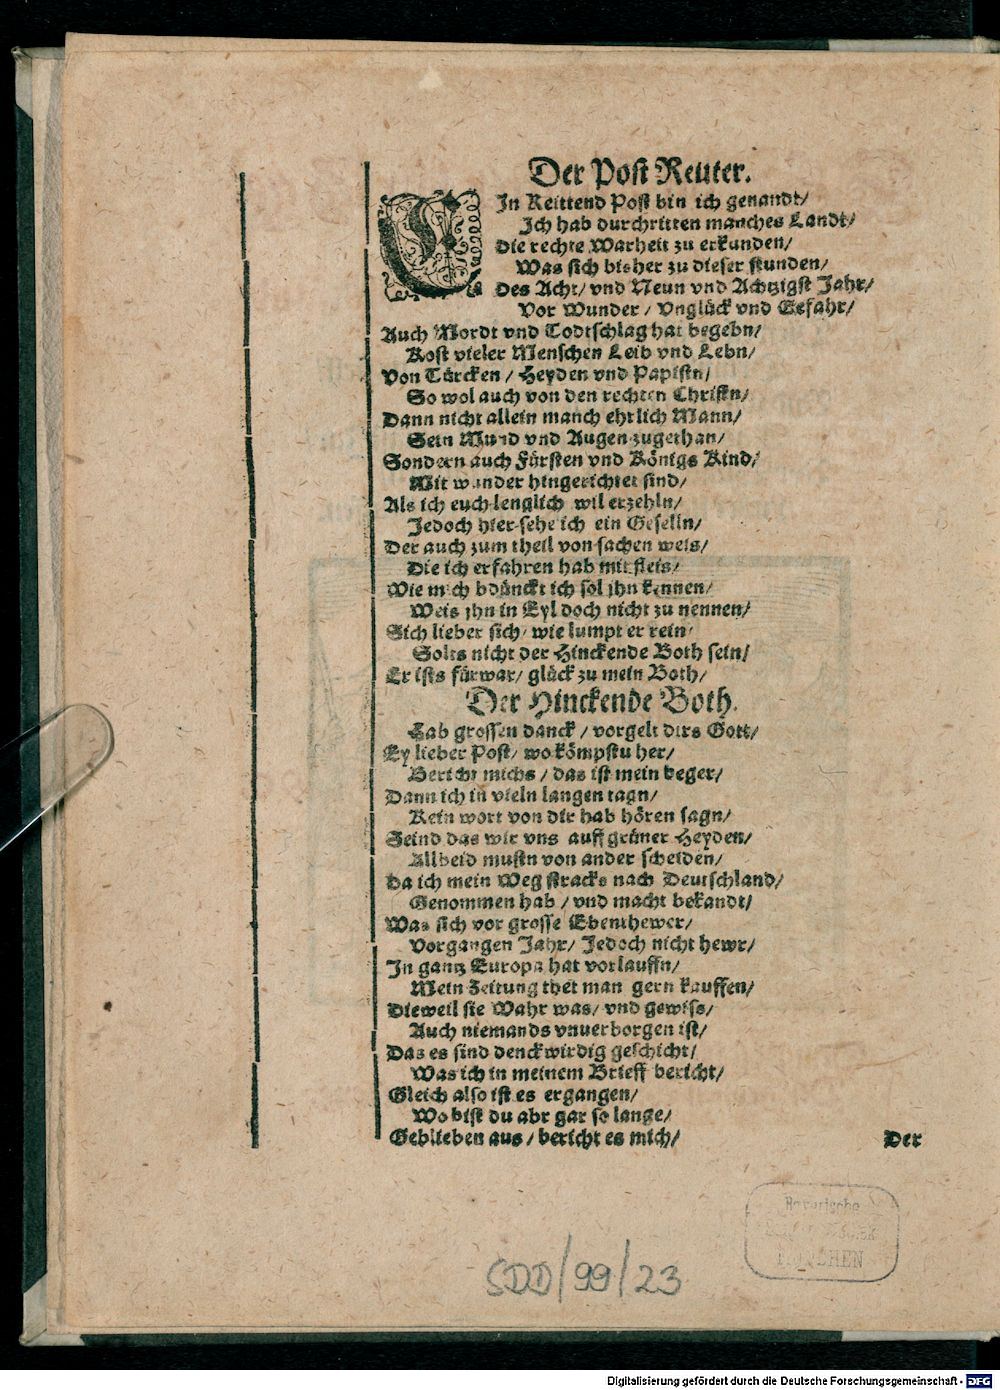 Der Post Reuter.
EIn Reittend Post bin ich genandt/
Ich hab durchritten manches Landt/
Die rechte Warheit zu erkunden/
Was sich bisher zu dieser stunden/
Des Acht/ vnd Neun vnd Achtzigst Jahr/
Vor Wunder/ Vnglück vnd Gefahr/
Auch Mordt vnd Todtschlag hat begebn/
Kost vieler Menschen Leib vnd Lebn/
Von Türcken/ Heyden vnd Papistn/
So wol auch von den rechten Christn/
Dann nicht allein manch ehrlich Mann/
Sein Mund vnd Augen zugethan/
Sondern auch Fürsten vnd Königs Kind/
Mit wunder hingerichtet sind/
Als ich euch lenglich wil erzehln/
Jedoch hier sehe ich ein Geselln/
Der auch zum theil von sachen weis/
Die ich erfahren hab mit fleis/
Wie mich bdünckt ich sol jhn kennen/
Weis jhn in Eyl doch nicht zu nennen/
Sich lieber sich/ wie lumpt er rein/
Solts nicht der Hinckende Both sein/
Er ists fürwar/ glück zu mein Both/
Der Hinckende Both.
Hab grossen danck/ vorgelt dirs Gott/
Ey lieber Post/ wo kömpstu her/
Bericht michs/ das ist mein beger/
Dann ich in vieln langen tagn/
Kein wort von dir hab hören sagn/
Seind das wir vns auff grüner Heyden/
Allbeid mustn von ander scheiden/
Da ich mein Weg stracks nach Deutschland/
Genommen hab/ vnd macht bekandt/
Was sich vor grosse Ebenthewer/
Vorgangen Jahr/ Jedoch nicht hewr/
In gantz Europa hat vorlauffn/
Mein Zeitung thet man gern kauffen/
Dieweil sie Wahr was/ vnd gewiss/
Auch niemands vnuerborgen ist/
Das es sind denckwirdig geschicht/
Was ich in meinem Brieff bericht/
Gleich also ist es ergangen/
Wo bist du abr gar so lange/
Geblieben aus/ bericht es mich/
Der
Bayerische
MÜNCHEN
SDD/99/23
Digitalisierung gefördert durch die Deutsche Forschungsgemeinschaft - DFG